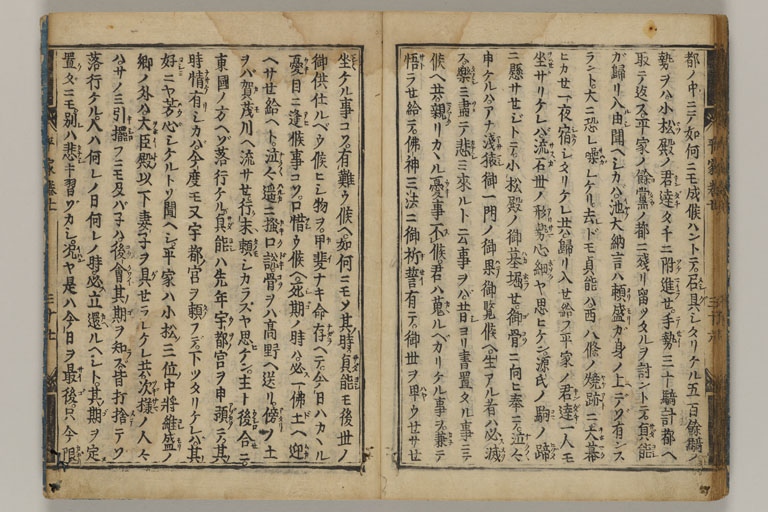 都ノ中ニテ如何ニモ成候ハントテ召具シタリケル五百餘騎ノ
勢ヲハ小松殿ノ君達タチニ附進セ手勢三十騎計都ヘ
取テ返ス平家ノ餘黨ノ都ニ殘リ留ツタルヲ討ントテ貞能
ガ歸リ入由聞ヘシカハ池大納言ハ頼盛カ身ノ上ニテソ有ンス
ラント大ニ恐レ噪レケリ去ドモ貞能ハ西八條ノ燒跡ニ大幕
ヒカセ一夜宿シタリケレ共歸リ入セ給フ平家ノ君達一人モ
坐サリケレハ流石世ノ形勢心細ヤ思ヒケン源氏ノ駒ノ蹄
ニ懸サセジトテ小松殿ノ御墓堀セ御骨ニ向ヒ奉テ泣々
申ケルハアナ淺猿御一門ノ御果御覧候ヘ生アル者ハ必滅
ス樂ミ盡テ悲ミ來ルト云事ヲハ昔ヨリ書置タル事ニテ
候ヘ共親リカヽル憂事不候君ハ蒐ルベカリケル事ヲ兼テ
悟ラセ給テ佛神三法ニ御祈誓有テ御世ヲ早ウセサセ
坐ケル事コソ有難ウ候ヘ如何ニモシテ其時貞能モ後世ノ
御供仕ルベウ候ヒシ物ヲ甲斐ナキ命存ヘテ今日ハカヽル
憂目ニ逢候事コソ口惜ウ候ヘ死期ノ時ハ必一佛土ヘ迎
ヘサセ給ヘト泣々遙ニ掻口説骨ヲハ高野ヘ送リ傍ノ土
ヲバ賀茂川ヘ流サセ行末頼シカラスヤ思ケン主ト後合ニ
東國ノ方ヘソ落行ケル貞能ハ先年宇都宮ヲ申預テ其
時情有シカハ今度モ又宇都宮ヲ頼フテ下ツタリケレハ其
好ニヤ芳心シケルトソ聞ヘシ平家ハ小松三位中將維盛ノ
卿ノ外ハ大臣殿以下妻子ヲ具セラレケレ共次樣ノ人々
ハサノミ引擢フニモ及バネハ後會其期ヲ知ス皆打捨テソ
落行ケル人ハ何レノ日何レノ時必立還ルヘシト其期ヲ定
置タニモ別ハ悲キ習ソカシ况ヤ是ハ今日ヲ最後只今限